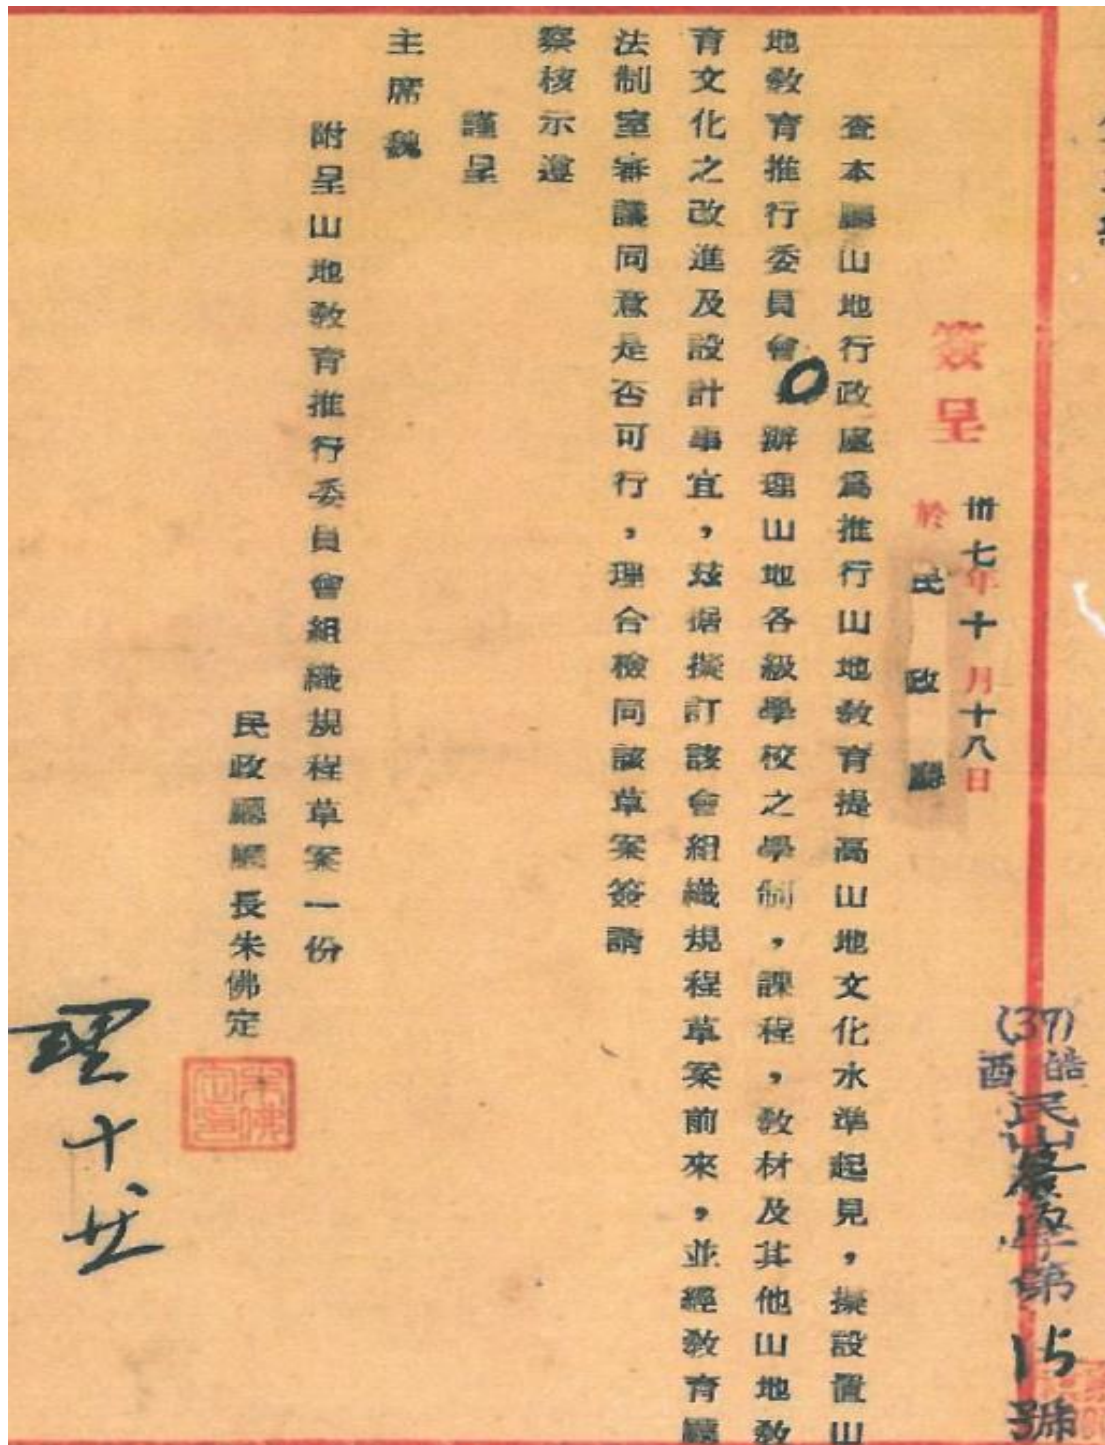 (37)
酉皓
民山
字第
15
號
簽呈
卅七年十月十八日
於民政廳
查本廳山地行政處爲推行山地教育提高山地文化水準起見，擬設置山
地教育推行委員會，辦理山地各級學校之學制，課程，教材及其他山地教
育文化之改進及設計事宜，茲据擬訂該會組織規程草案前來，並經教育廳
法制室審議同意是否可行，理合檢同該草案簽請
察核示遵
謹呈
主席魏
附呈山地教育推行委員會組織規程草案一份
民政廳廳長朱佛定
十廿